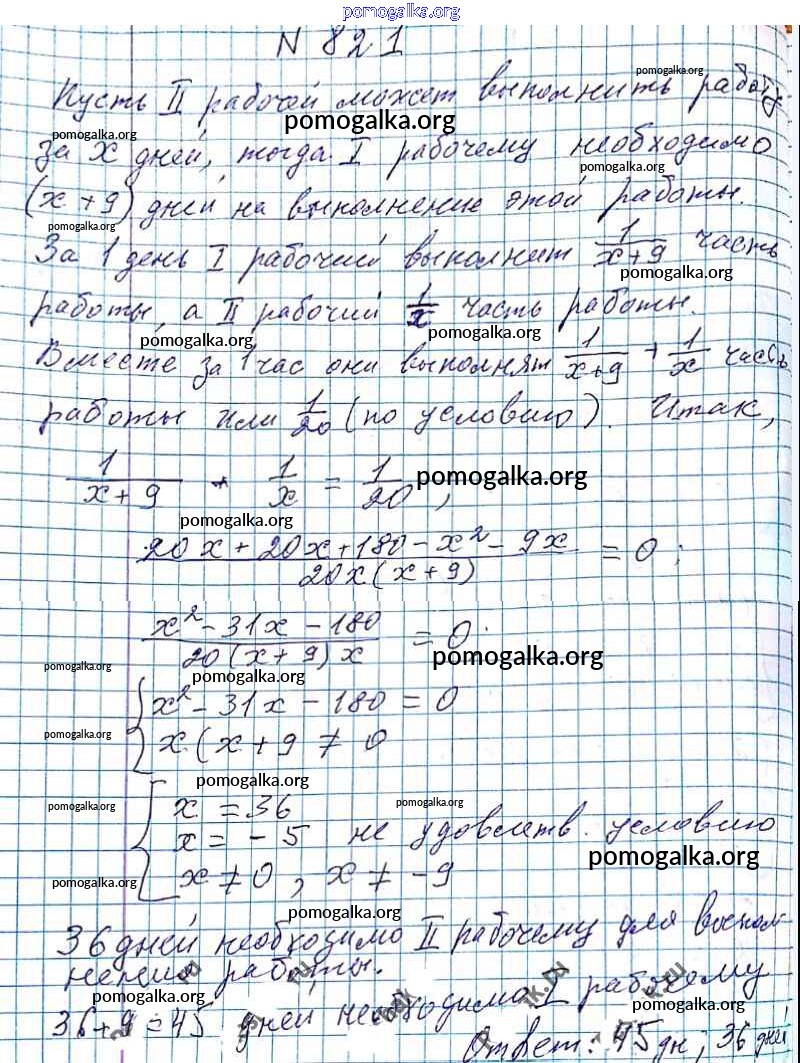 pomogalka.org
N 821
pomogalka.org
Пусть II рабочий может выполнить работу
pomogalka.org
pomogalka.org
за x дней, тогда I рабочему необходимо
pomogalka.org
(x + 9) дней на выполнение этой работы.
pomogalka.org
За 1 день I рабочий выполнит 1/(x+9) часть
pomogalka.org
работы, а II рабочий 1/x часть работы.
pomogalka.org
pomogalka.org
Вместе за 1 час они выполнят 1/(x+9) + 1/x часть
работы или 1/20 (по условию). Итак,
1/(x+9) + 1/x = 1/20,
pomogalka.org
pomogalka.org
(20x + 20x + 180 - x² - 9x)/(20x(x+9)) = 0;
(x² - 31x - 180)/(20(x+9)x) = 0;
pomogalka.org
pomogalka.org
pomogalka.org
{ x² - 31x - 180 = 0
pomogalka.org
x (x + 9 ≠ 0
pomogalka.org
pomogalka.org
pomogalka.org
[ x = 36
x = - 5 не удовлетв. условию
pomogalka.org
x ≠ 0, x ≠ -9
pomogalka.org
pomogalka.org
36 дней необходимо II рабочему для выпол-
нения работы.
pomogalka.org
pomogalka.org
36+9=45 дней необходимо I рабочему
Ответ: 45 дн; 36 дней